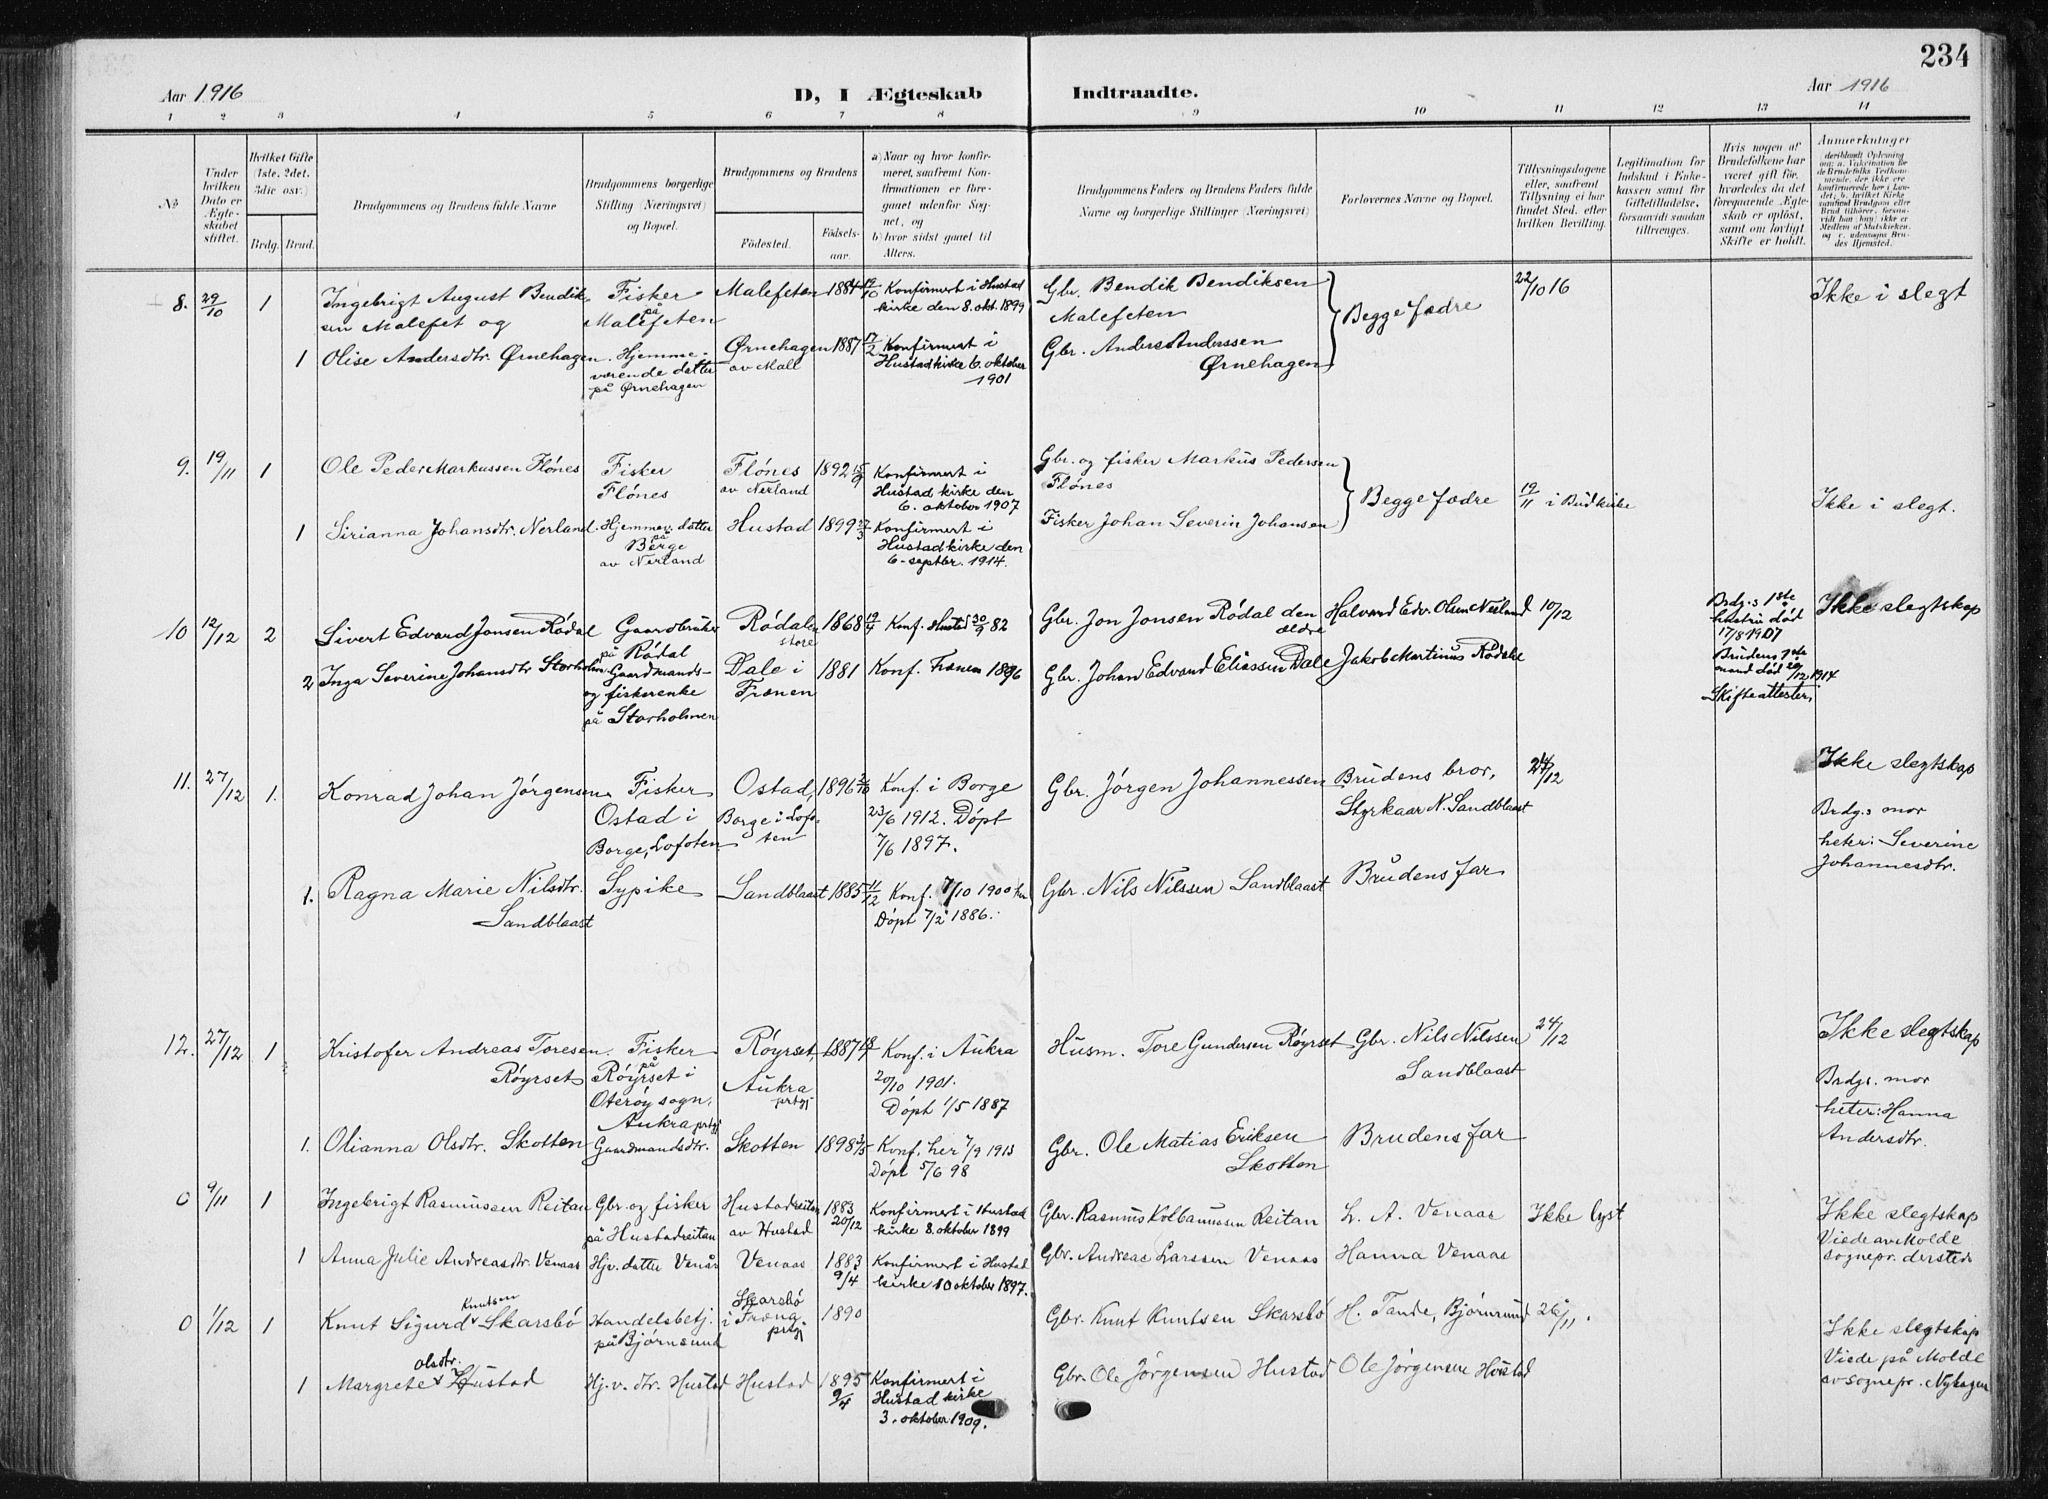 234
Aar 1916
D, I Ægteskab Indtraadte.
Aar 1916
1 2 3 4 5 6 7 8 9 10 11 12 13 14
No
Under hvilken Dato er Ægteskabet stiftet.
Hvilket Gifte (1ste, 2det, 3die osv.)
Brdg. Brud.
Brudgommens og Brudens fulde Navne
Brudgommens borgerlige Stilling (Næringsvei) og Bopæl.
Brudgommens og Brudens
Fødested. Fødselsaar.
a) Naar og hvor konfirmeret, saafremt Konfirmationen er foregaaet udenfor Sognet, og
b) hvor sidst gaaet til Alters.
Brudgommens Faders og Brudens Faders fulde Navne og borgerlige Stillinger (Næringsvei)
Forlovernes Navne og Bopæl.
Tillysningsdagene eller, saafremt Tillysning ei har fundet Sted, efter hvilken Bevilling.
Legitimation for Indskud i Enkekassen samt for Giftetilladelse, forsaavidt saadan tiltrænges.
Hvis nogen af Brudefolkene har været gift før, hvorledes da det foregaaende Ægteskab er opløst, samt om lovligt Skifte er holdt.
Anmerkninger
8. 29/10 1
Ingebrigt August Bendiksen Malefet og
Fisker på Malefeten
Malefeten 1884 12/10
Konfirmert i Hustad kirke den 8. okt. 1899
Gbr. Bendik Bendiksen Malefeten
Begge fædre
22/10 16
Ikke i slegt
1 Olise Andersdtr. Ørnehagen.
Hjemmeværende datter på Ørnehagen
Ørnehagen av Mall 1887
Konfirmert i Hustad kirke 6. oktober 1901
Gbr. Anders Anderssen Ørnehagen
9. 19/11 1
Ole Peder Markussen Flónes
Fisker Flónes
Flónes av Nerland 1892 15/9
Konfirmert i Hustad kirke den 6. oktober 1907
Gbr. og fisker Markus Pedersen Flónes
Begge fædre
19/11 i Budkirke
Ikke i slegt.
1 Sirianna Johansdtr. Nerland.
Hjemmev. datter på Berge av Nerland
Hustad 1899 27/3
Konfirmert i Hustad kirke den 6. septbr. 1914.
Fisker Johan Severin Johansen
10 12/12 2
Sivert Edvard Jonsen Ródal
Gaardbruker på Ródal
Ródal store 1868 19/4
Konf. Hustad 30/9 82
Gbr. Jon Jonsen Ródal den ældre
Halvard Edv. Olsen Nesland
10/12
Brdg.s 1ste hustru död 17/8 1907
Brudens 1ste mand død 29/12 1914
Skifteattester,
Ikke slegtskap
2 Inga Severine Johansdtr Storholm.
Gaardmands- og fiskerenke på Storholmen
Dale i Frænen 1881
Konf. Frænen 1896
Gbr. Johan Edvard Eliassen Dale
Jakob Martinus Ródal
11. 27/12 1.
Konrad Johan Jórgensen.
Fisker Ostad i Borge, Lofoten
Ostad, Borge i Lofoten 1896
Konf. i Borge 23/6 1912. Dópt 7/6 1897.
Gbr. Jórgen Johannessen
Brudens bror, Styrkaar N. Sandblaast
24/12
Ikke slegtskap
Brdg.s mor heter: Severine Johannesdtr.
1. Ragna Marie Nilsdtr. Sandblaast
Sypike
Sandblaast 1885 11/12
Konf. 7/10 1900 her Dópt 7/2 1886.
Gbr. Nils Nilssen Sandblaast
Brudens far
12. 27/12 1
Kristofer Andreas Toresen. Róyrset
Fisker på Róyrset i Oteróy sogn, Aukra prtgj
Róyrset, Aukra prtgj 1887
Konf. i Aukra 20/10 1901. Dópt 1/5 1887
Husm. Tore Gundersen Róyrset
Gbr. Nils Nilssen Sandblaast
24/12
Ikke slegtskap
Brdgs. mor heter: Hanna Andersdtr.
1. Olianna Olsdtr. Skotten
Gaardmandsdtr.
Skotten 1898
Konf. her 7/9 1913 Dópt 5/6 98
Gbr. Ole Matias Eriksen Skotten
Brudens far
0 9/11 1
Ingebrigt Rasmussen Reitan
Gbr. og fisker på Hustadreitan
Hustadreitan av Hustad 1883 20/12
Konfirmert i Hustad kirke 8. oktober 1899
Gbr. Rasmus Kolbanussen Reitan
L. A. Venaas
Ikke lyst
Ikke slegtskap
Viede av Molde sognepr. dersteds
1 Anna Julie Andreasdtr. Venaas
Hjv. datter Venås
Venaas 1883 9/4
Konfirmert i Hustad kirke 10 oktober 1897.
Gbr. Andreas Larssen Venaas
Hanna Venaas
0 1/12 1
Knut Sigurd Knutsen Skarsbó
Handelsbetj. på Bjórnsund
Skarsbó i Fræna prtgj 1890
Gbr. Knut Knutsen Skarsbó
H. Tande, Bjórnsund
26/11.
Ikke slegtskap
Viede på Molde av sognepr. Nyhagen
1 Margrete Olsdtr. Hustad
Hj.v. dtr. Hustad
Hustad 1895 9/4
Konfirmert i Hustad kirke 3. oktober 1909.
Gbr. Ole Jórgensen Hustad
Ole Jórgensen Hustad